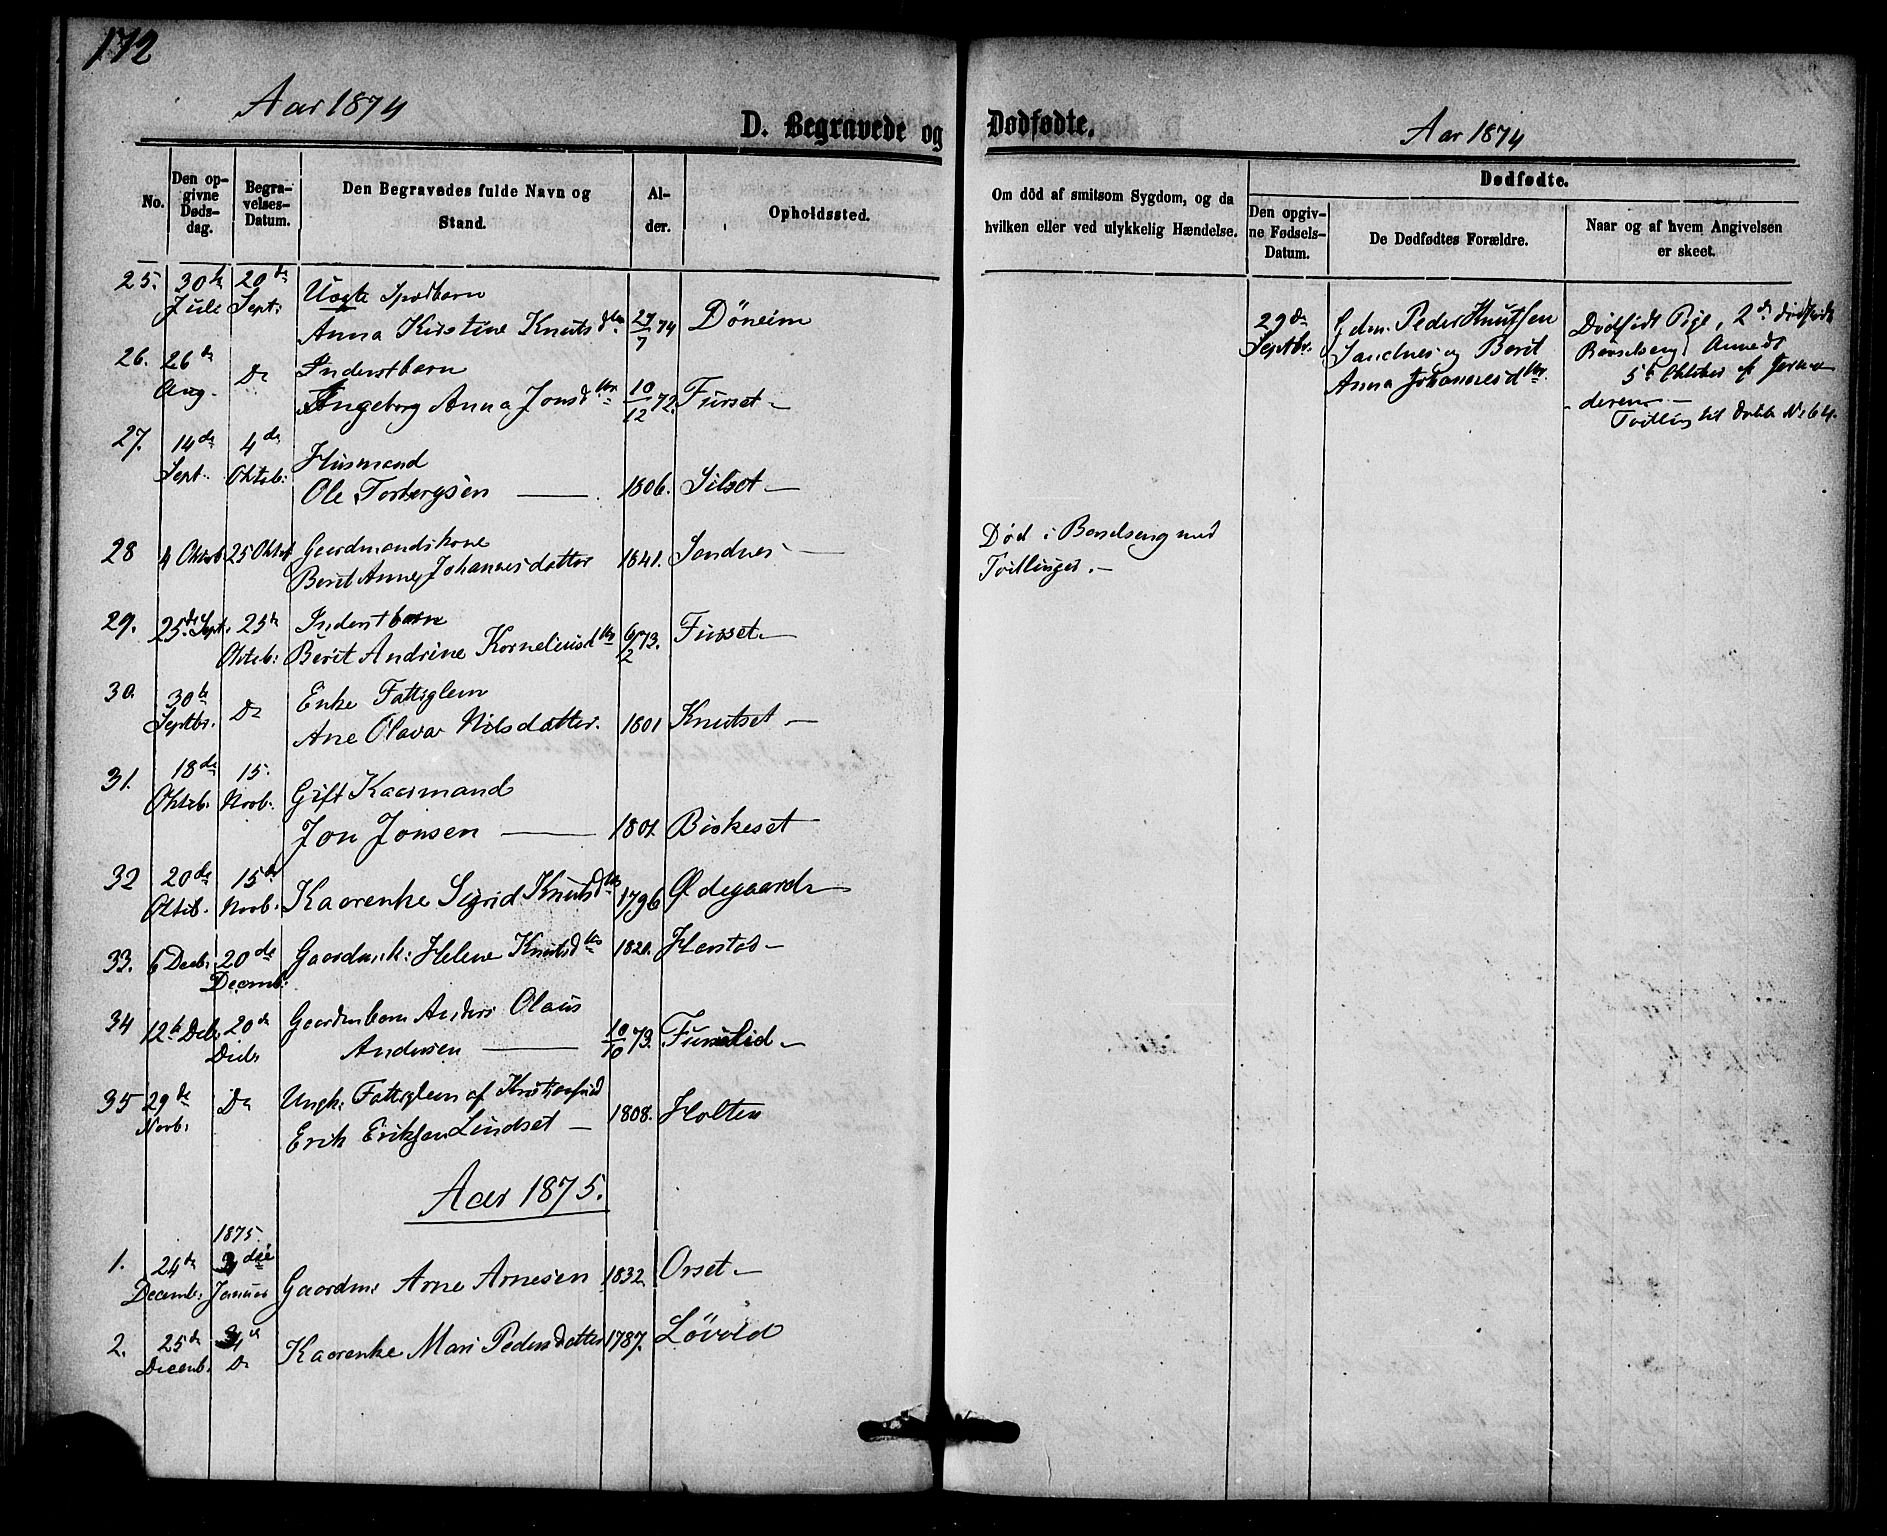 172
Aar 1874
D. Begravede og
Dødfødte.
Aar 1874
No.
Den op-
givne
Døds-
dag.
Begra-
velses-
Datum.
Den Begravedes fulde Navn og
Stand.
Al-
der.
Opholdssted.
Om död af smitsom Sygdom, og da
hvilken eller ved ulykkelig Hændelse.
Dødfødte.
Den opgiv-
ne Fødsels-
Datum.
De Dødfødtes Forældre.
Naar og af hvem Angivelsen
er skeet.
25. 30te Juli 20de Sept:
Uægte Spædbarn
Anna Kirstine Knutsdtr 27/7 74 Döneim
29de Septbr.
Gdm. Peder Knutsen
Sandnes og Berit
Anna Johannesdtr.
Dødfødt Pige, 2de dødfødt
5te Oktober af Jorda
deren
Tvilling til No 64.
26. 26de Aug. Do
Inderstbarn
Ingeborg Anna Jonsdtr 10/12 72. Furset
27. 14de Sept. 4de Oktob:
Husmand
Ole Torbergsen 1806. Silset
28 4 Oktob 25 Oktob
Gaardmandskone
Berit Anne Johannesdatter 1841. Sandnes
Død i Barselseng med
Tvillinger.
29. 25de Sept. 25de Oktob:
Inderstbarn
Berit Andrine Korneliusdtr 6/2 73. Furset
30. 30te Septbr. Do
Enke Fattiglem
Ane Olava Nilsdatter. 1801 Knutset
31. 18de Oktob. 15. Novb.
Gift Kaarmand
Jon Jonsen 1801. Biskeset
32 20de Oktob. 15de Novb.
Kaarenke Sigrid Knutsdtr 1796 Ødegaard
33. 6 Decb. 20de Decemb:
Gaardmk: Helene Knutsdtr 1820. Hanstad
34 12te Decb. 20de Decb.
Gaardmbarn Anders Olaus
Andersen 10/10 73. Fursetlid
35 29de Novb. Do
Ungk: Fattiglem af Kristiansund
Erik Eriksen Lindset 1808. Holten
Aar 1875.
1875.
1. 24de Decemb: 3die Januar
Gaardm: Arne Arnesen 1832 Orset
2. 25de Decemb. Do
Kaarenke Mari Pedersdatter 1787. Løvold